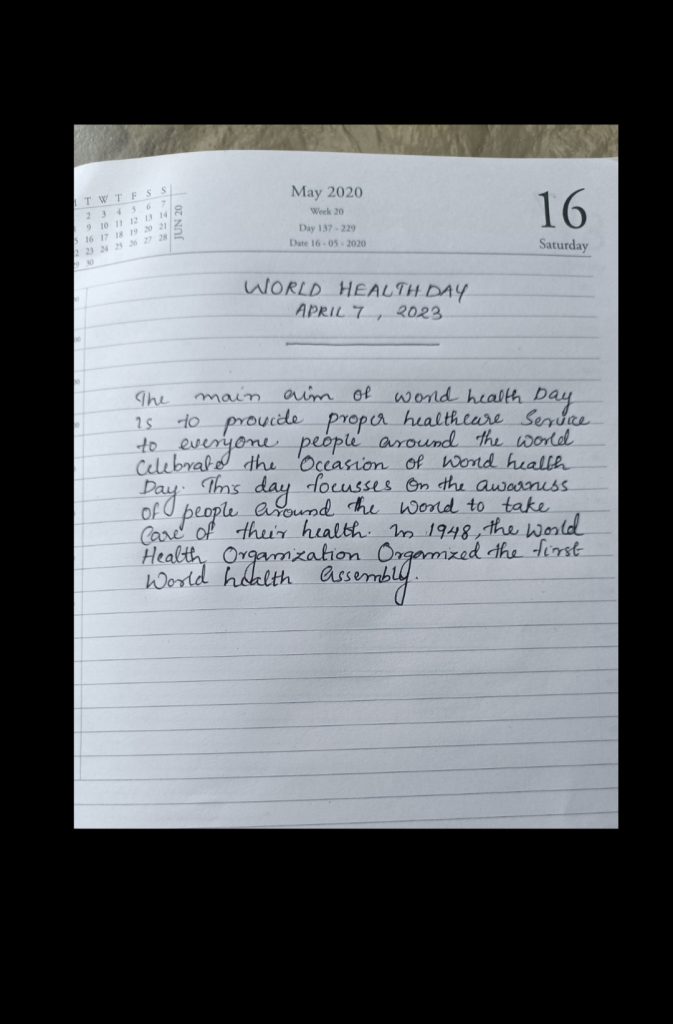 T W T F S S
2 3 4 5 6 7
9 10 11 12 13 14
16 17 18 19 20 21
23 24 25 26 27 28
30
JUN 20
May 2020
Week 20
Day 137 - 229
Date 16 - 05 - 2020
16
Saturday
WORLD HEALTH DAY
APRIL 7, 2023
The main aim of world health Day
is to provide proper healthcare Service
to everyone. people around the world
Celebrate the Occasion of World health
Day. This day focusses on the awarness
of people around the world to take
Care of their health. In 1948, the World
Health Organization Organized the first
World health Assembly.